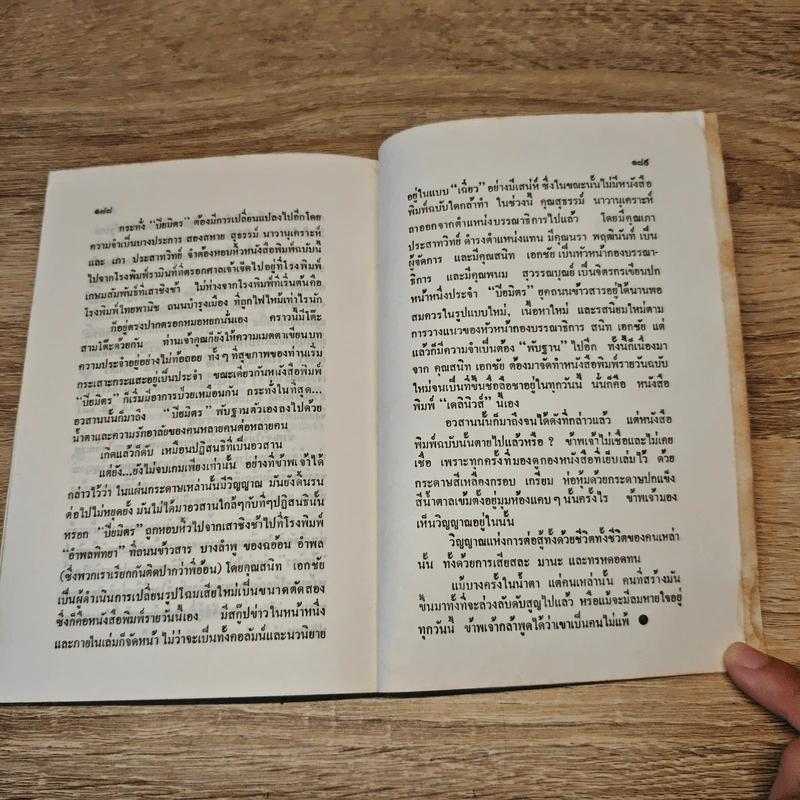 ๑๘๘
กระทั่ง “ปิยมิตร” ต้องมีการเปลี่ยนแปลงไปอีกโดย
ความจำเป็นบางประการ สองสหาย สุธรรม์ นาวานุเคราะห์
และ เภา ประสาทวิทย์ จำต้องหอบหัวหนังสือพิมพ์ฉบับนี้
ไปจากโรงพิมพ์รามินที่ตรอกศาลเจ้าเจ็ดไปอยู่ที่โรงพิมพ์
เกษมสัมพันธ์ที่เสาชิงช้า ไม่ห่างจากโรงพิมพ์ที่เริ่มต้นคือ
โรงพิมพ์ไทยพานิช ถนนบำรุงเมือง ที่ถูกไฟไหม้เท่าไรนัก
ก็อยู่ตรงปากตรอกหมอหยกนั้นเอง คราวนี้มีโต๊ะ
สามโต๊ะด้วยกัน ท่านเจ้าคุณก็ยังให้ความเมตตาเขียนบท
ความประจำอยู่อย่างไม่ท้อถอย ทั้ง ๆ ที่สุขภาพของท่านเริ่ม
กระเสาะกระแสะอยู่เป็นประจำ ขณะเดียวกันหนังสือพิมพ์
“ปิยมิตร” ก็เริ่มมีอาการป่วยเหมือนกัน กระทั่งในที่สุด...
อวสานนั้นก็มาถึง “ปิยมิตร” พับฐานตัวเองลงไปด้วย
น้ำตาและความรักอาลัยของคนหลายคนต่อหลายคน
เกิดแล้วก็ดับ เหมือนปฏิสนธิที่เป็นอวสาน
แต่ยัง...ยังไม่จบเกมเพียงเท่านั้น อย่างที่ข้าพเจ้าได้
กล่าวไว้ว่า ในแผ่นกระดาษเหล่านั้นมีวิญญาณ มันยังดิ้นรน
ต่อไปไม่หยุดยั้ง มันไม่ได้มาอวสานใกล้ๆกับที่ๆปฏิสนธินั้น
หรอก “ปิยมิตร” ถูกหอบหิ้วไปจากเสาชิงช้าไปที่โรงพิมพ์
“อำพลพิทยา” ที่ถนนข้าวสาร บางลำพู ของฉอ้อน อำพล
(ซึ่งพวกเราเรียกกันติดปากว่าพี่อ้อน) โดยคุณสนิท เอกชัย
เป็นผู้ดำเนินการเปลี่ยนรูปโฉมเสียใหม่เป็นขนาดตัดสอง
ซึ่งก็คือหนังสือพิมพ์รายวันนี้เอง มีสกู๊ปข่าวในหน้าหนึ่ง
และภายในเล่มก็จัดหน้า ไม่ว่าจะเป็นทั้งคอลัมน์และนวนิยาย
๑๘๙
อยู่ในแบบ “เฉี่ยว” อย่างมีเสน่ห์ ซึ่งในขณะนั้นไม่มีหนังสือ
พิมพ์ฉบับใดกล้าทำ ในช่วงนี้ คุณสุธรรม์ นาวานุเคราะห์
ลาออกจากตำแหน่งบรรณาธิการไปแล้ว โดยมีคุณเภา
ประสาทวิทย์ ดำรงตำแหน่งแทน มีคุณนรา พฤฒินันท์ เป็น
ผู้จัดการ และมีคุณสนิท เอกชัย เป็นหัวหน้ากองบรรณา-
ธิการ และมีคุณพนม สุวรรณบุณย์ เป็นจิตรกรเขียนปก
หน้าหนึ่งประจำ “ปิยมิตร” ยุคถนนข้าวสารอยู่ได้นานพอ
สมควรในรูปแบบใหม่, เนื้อหาใหม่ และรสนิยมใหม่ตาม
การวางแนวของหัวหน้ากองบรรณาธิการ สนิท เอกชัย แต่
แล้วก็มีความจำเป็นต้อง “พับฐาน” ไปอีก ทั้งนี้ก็เนื่องมา
จาก คุณสนิท เอกชัย ต้องมาจัดทำหนังสือพิมพ์รายวันฉบับ
ใหม่จนเป็นที่ขึ้นชื่อลือชาอยู่ในทุกวันนี้ นั่นก็คือ หนังสือ
พิมพ์ “เดลินิวส์” นี้เอง
อวสานนั้นก็มาถึงจนได้ดังที่กล่าวแล้ว แต่หนังสือ
พิมพ์ฉบับนั้นตายไปแล้วหรือ ? ข้าพเจ้าไม่เชื่อและไม่เคย
เชื่อ เพราะทุกครั้งที่มองดูกองหนังสือที่เย็บเล่มไว้ ด้วย
กระดาษสีเหลืองกรอบ เกรียม ห่อหุ้มด้วยกระดาษปกแข็ง
สีน้ำตาลเข้มตั้งอยู่มุมห้องแคบ ๆ นั้นครั้งไร ข้าพเจ้ามอง
เห็นวิญญาณอยู่ในนั้น
วิญญาณแห่งการต่อสู้ทั้งด้วยชีวิตทั้งชีวิตของคนเหล่า
นั้น ทั้งด้วยการเสียสละ มานะ และทรหดอดทน
แม้บางครั้งในน้ำตา แต่คนเหล่านั้น คนที่สร้างมัน
ขึ้นมาทั้งที่จะล่วงลับดับสูญไปแล้ว หรือแม้จะมีลมหายใจอยู่
ทุกวันนี้ ข้าพเจ้ากล้าพูดได้ว่าเขาเป็นคนไม่แพ้ ●